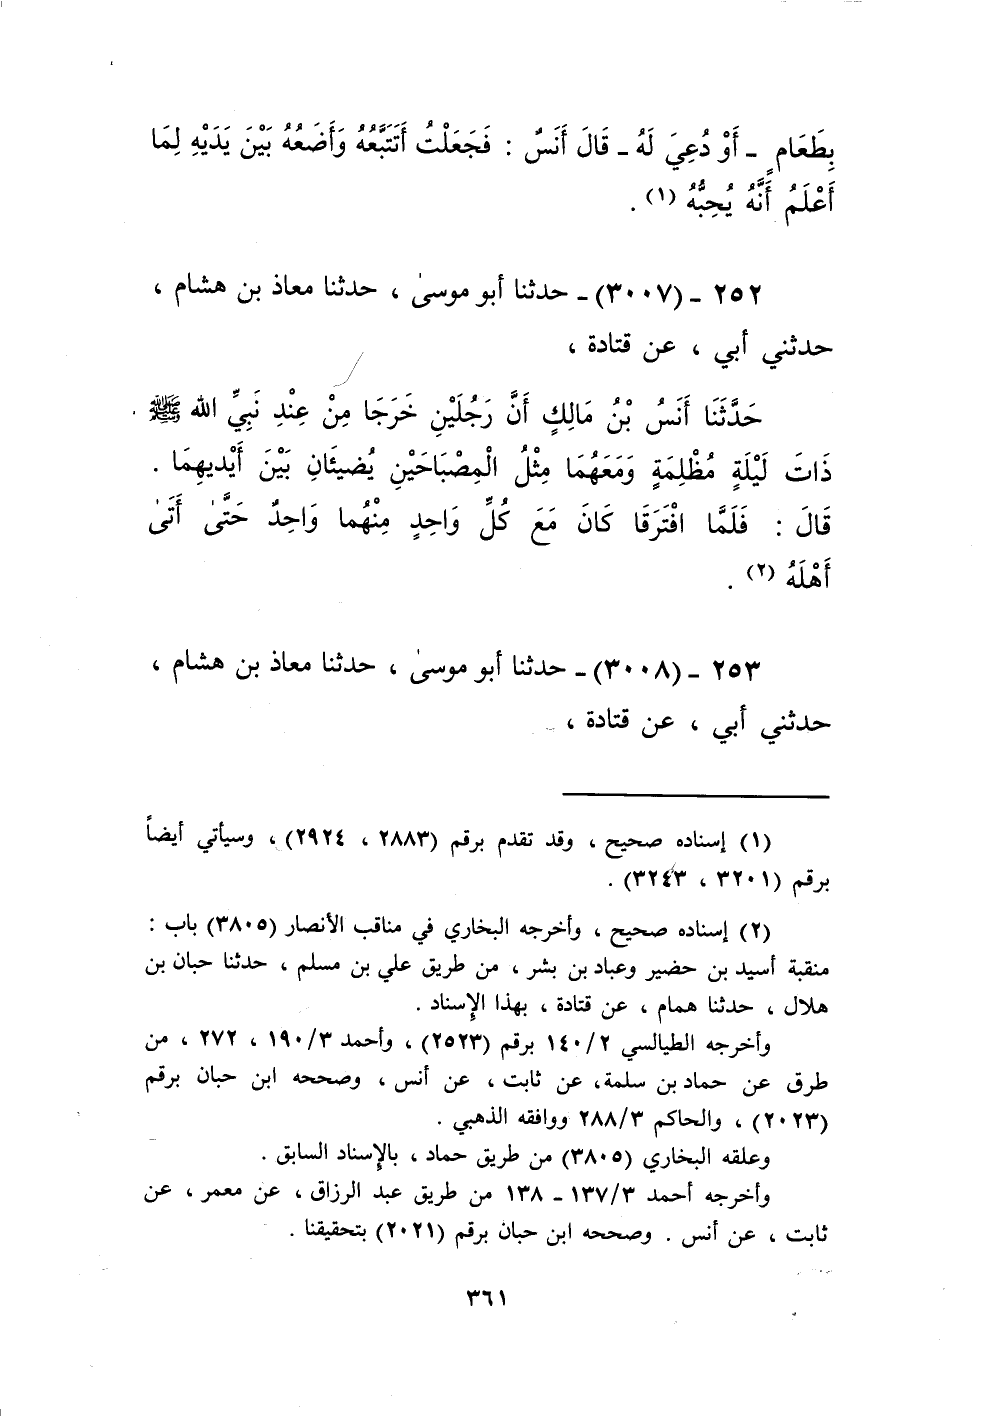 بِطَعَامٍ ـ أَوْ دُعِيَ لَهُ ـ قَالَ أَنَسٌ : فَجَعَلْتُ أَتَتَبَّعُهُ وَأَضَعُهُ بَيْنَ يَدَيْهِ لِمَا
أَعْلَمُ أَنَّهُ يُحِبُّهُ (١) .
٢٥٢ ـ (٣٠٠٧) ـ حدثنا أبو موسىٰ ، حدثنا معاذ بن هشام ،
حدثني أبي ، عن قتادة ،
حَدَّثَنَا أَنَسُ بْنُ مَالِكٍ أَنَّ رَجُلَيْنِ خَرَجَا مِنْ عِنْدِ نَبِيِّ الله ﷺ
ذَاتَ لَيْلَةٍ مُظْلِمَةٍ وَمَعَهُمَا مِثْلُ الْمِصْبَاحَيْنِ يُضيئَانِ بَيْنَ أَيْديهِمَا .
قَالَ : فَلَمَّا افْتَرَقَا كَانَ مَعَ كُلِّ وَاحِدٍ مِنْهُما وَاحِدٌ حَتَّىٰ أَتَىٰ
أَهْلَهُ (٢) .
٢٥٣ ـ (٣٠٠٨) ـ حدثنا أبو موسىٰ ، حدثنا معاذ بن هشام ،
حدثني أبي ، عن قتادة ،
(١) إسناده صحيح ، وقد تقدم برقم (٢٨٨٣ ، ٢٩٢٤) ، وسيأتي أيضاً
برقم (٣٢٠١ ، ٣٢٤٣) .
(٢) إسناده صحيح ، وأخرجه البخاري في مناقب الأنصار (٣٨٠٥) باب :
منقبة أسيد بن حضير وعباد بن بشر ، من طريق علي بن مسلم ، حدثنا حبان بن
هلال ، حدثنا همام ، عن قتادة ، بهذا الإسناد .
وأخرجه الطيالسي ١٤٠/٢ برقم (٢٥٢٣) ، وأحمد ١٩٠/٣ ، ٢٧٢ ، من
طرق عن حماد بن سلمة، عن ثابت ، عن أنس ، وصححه ابن حبان برقم
(٢٠٢٣) ، والحاكم ٢٨٨/٣ ووافقه الذهبي .
وعلقه البخاري (٣٨٠٥) من طريق حماد ، بالإسناد السابق .
وأخرجه أحمد ١٣٧/٣ ـ ١٣٨ من طريق عبد الرزاق ، عن معمر ، عن
ثابت ، عن أنس . وصححه ابن حبان برقم (٢٠٢١) بتحقيقنا .
٣٦١